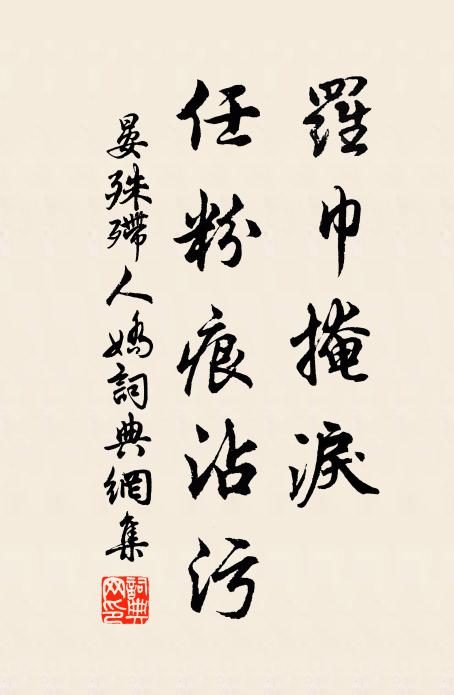 羅巾掩淚
任粉痕沾污
晏殊殢人嬌詞典網集
詞典網印